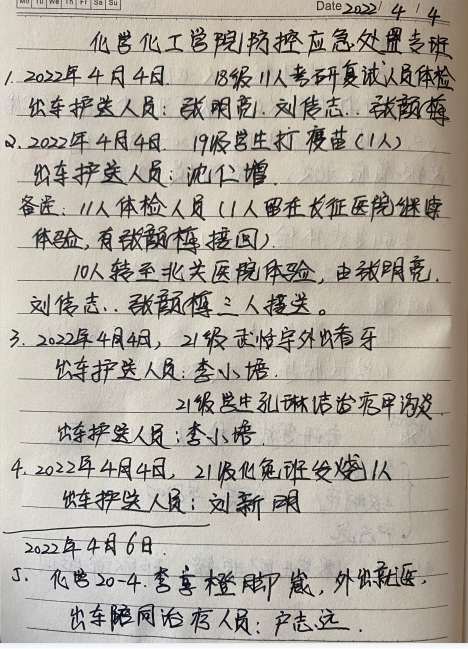 Mo Tu We Th Fr Sa Su
Date 2022/ 4 / 4
化学化工学院防控应急处置专班
1. 2022年4月4日. 18级11人考研复试人员体检
出车护送人员: 张明亮. 刘传志.. 张颜梅
2. 2022年4月4日. 19级学生打疫苗(1人)
出车护送人员: 沈仁增.
备注: 11人体检人员(1人留在长征医院继续
体验, 有张颜梅接回).
10人转至北关医院体验, 由张明亮.
刘传志.. 张颜梅三人接送。
3. 2022年4月4日, 21级武恬宇外出看牙
出车护送人员: 李小培.
21级学生孔琳洁治疗甲沟炎.
出车护送人员: 李小培.
4. 2022年4月4日, 21级化免班发烧1人
出车护送人员: 刘新明
2022年4月6日.
5. 化学20-4. 李享橙脚崴, 外出就医,
出车陪同治疗人员: 卢志远.